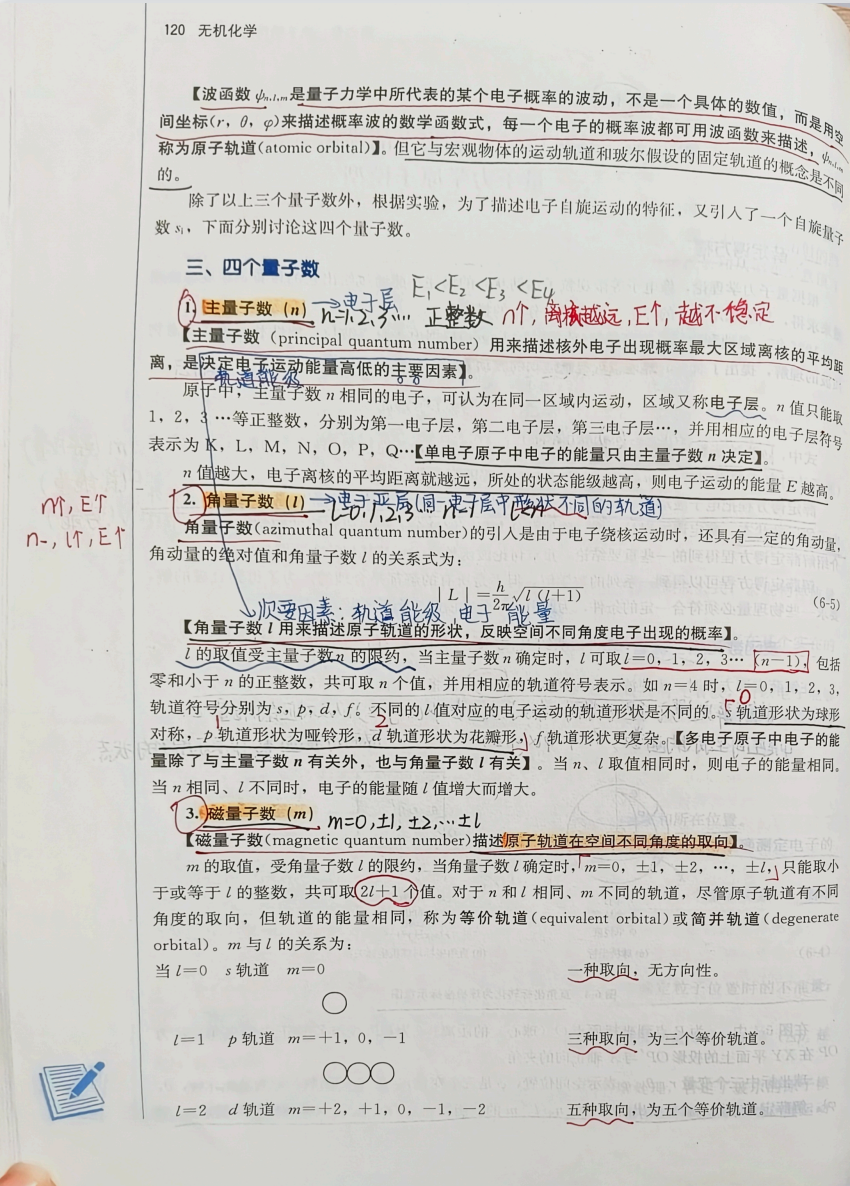 120 无机化学
【波函数 ψn,l,m是量子力学中所代表的某个电子概率的波动，不是一个具体的数值，而是用空
间坐标(r，θ，φ)来描述概率波的数学函数式，每一个电子的概率波都可用波函数来描述，ψn,l,m
称为原子轨道(atomic orbital)】。但它与宏观物体的运动轨道和玻尔假设的固定轨道的概念是不同
的。
除了以上三个量子数外，根据实验，为了描述电子自旋运动的特征，又引入了一个自旋量子
数 si，下面分别讨论这四个量子数。
三、四个量子数
E₁<E₂<E₃<E₄
1. 主量子数（n） →电子层
n=1,2,3… 正整数 n↑，离核越远，E↑，越不稳定
【主量子数（principal quantum number）用来描述核外电子出现概率最大区域离核的平均距
离，是决定电子运动能量高低的主要因素】。
轨道能级
原子中，主量子数 n 相同的电子，可认为在同一区域内运动，区域又称电子层。n 值只能取
1，2，3 …等正整数，分别为第一电子层，第二电子层，第三电子层…，并用相应的电子层符号
表示为 K，L，M，N，O，P，Q…【单电子原子中电子的能量只由主量子数 n 决定】。
n 值越大，电子离核的平均距离就越远，所处的状态能级越高，则电子运动的能量 E 越高。
n↑, E↑
n-, l↑, E↑
2. 角量子数（l） →电子亚层(同一电子层中形状不同的轨道)
l=0,1,2,3… n-1
角量子数(azimuthal quantum number)的引入是由于电子绕核运动时，还具有一定的角动量，
角动量的绝对值和角量子数 l 的关系式为：
|L|=h/2π√l(l+1) (6-5)
次要因素：轨道能级，电子能量
【角量子数 l 用来描述原子轨道的形状，反映空间不同角度电子出现的概率】。
l 的取值受主量子数n 的限约，当主量子数 n 确定时，l 可取 l=0，1，2，3… (n−1)，包括
零和小于 n 的正整数，共可取 n 个值，并用相应的轨道符号表示。如 n=4 时，l=0，1，2，3，
轨道符号分别为 s，p，d，f。不同的 l 值对应的电子运动的轨道形状是不同的。s 轨道形状为球形
0
对称，p 轨道形状为哑铃形，d 轨道形状为花瓣形，f 轨道形状更复杂。【多电子原子中电子的能
1 2
量除了与主量子数 n 有关外，也与角量子数 l 有关】。当 n、l 取值相同时，则电子的能量相同。
当 n 相同、l 不同时，电子的能量随 l 值增大而增大。
3. 磁量子数（m） m=0,±1,±2,…±l
【磁量子数(magnetic quantum number)描述原子轨道在空间不同角度的取向】。
m 的取值，受角量子数 l 的限约，当角量子数 l 确定时，m=0，±1，±2，…，±l，只能取小
于或等于 l 的整数，共可取 2l+1 个值。对于 n 和 l 相同、m 不同的轨道，尽管原子轨道有不同
角度的取向，但轨道的能量相同，称为等价轨道(equivalent orbital)或简并轨道(degenerate
orbital)。m 与 l 的关系为：
当 l=0 s 轨道 m=0 一种取向，无方向性。
l=1 p 轨道 m=+1，0，−1 三种取向，为三个等价轨道。
l=2 d 轨道 m=+2，+1，0，−1，−2 五种取向，为五个等价轨道。